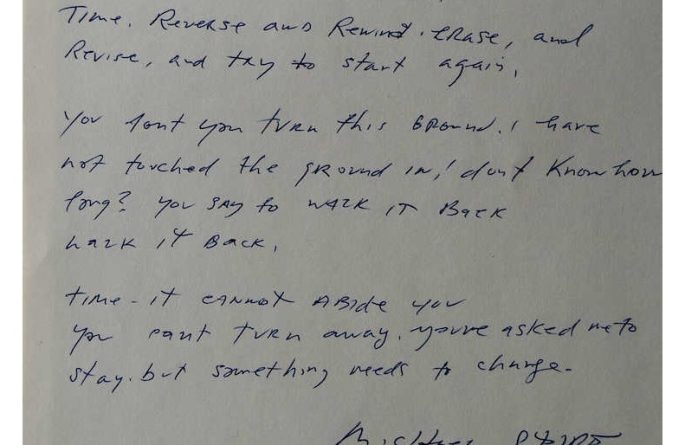 Time. Reverse and Rewind. ERASE, and
Revise, and try to start again.
You dont you turn this GROUND. I have
not touched the GROUND in, I dont Know how
long? You say to walk it Back
walk it Back.
time - it CANNOT ABide you
you cant turn away. youve asked me to
stay. but something needs to change.
Michael